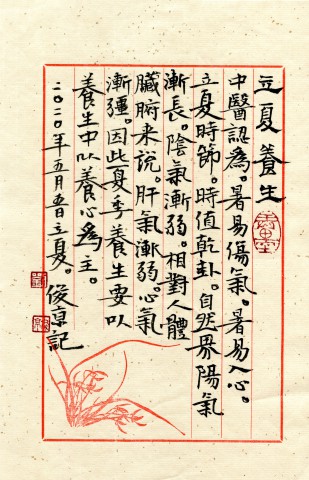 立夏養生
中醫認為。暑易傷氣。暑易入心。
立夏時節。時值乾卦。自然界陽氣
漸長。陰氣漸弱。相對人體
臟腑来说。肝氣漸弱。心氣
漸彊。因此夏季養生要以
養生中以養心為主。
二〇二〇年五月五日立夏。
俊京記